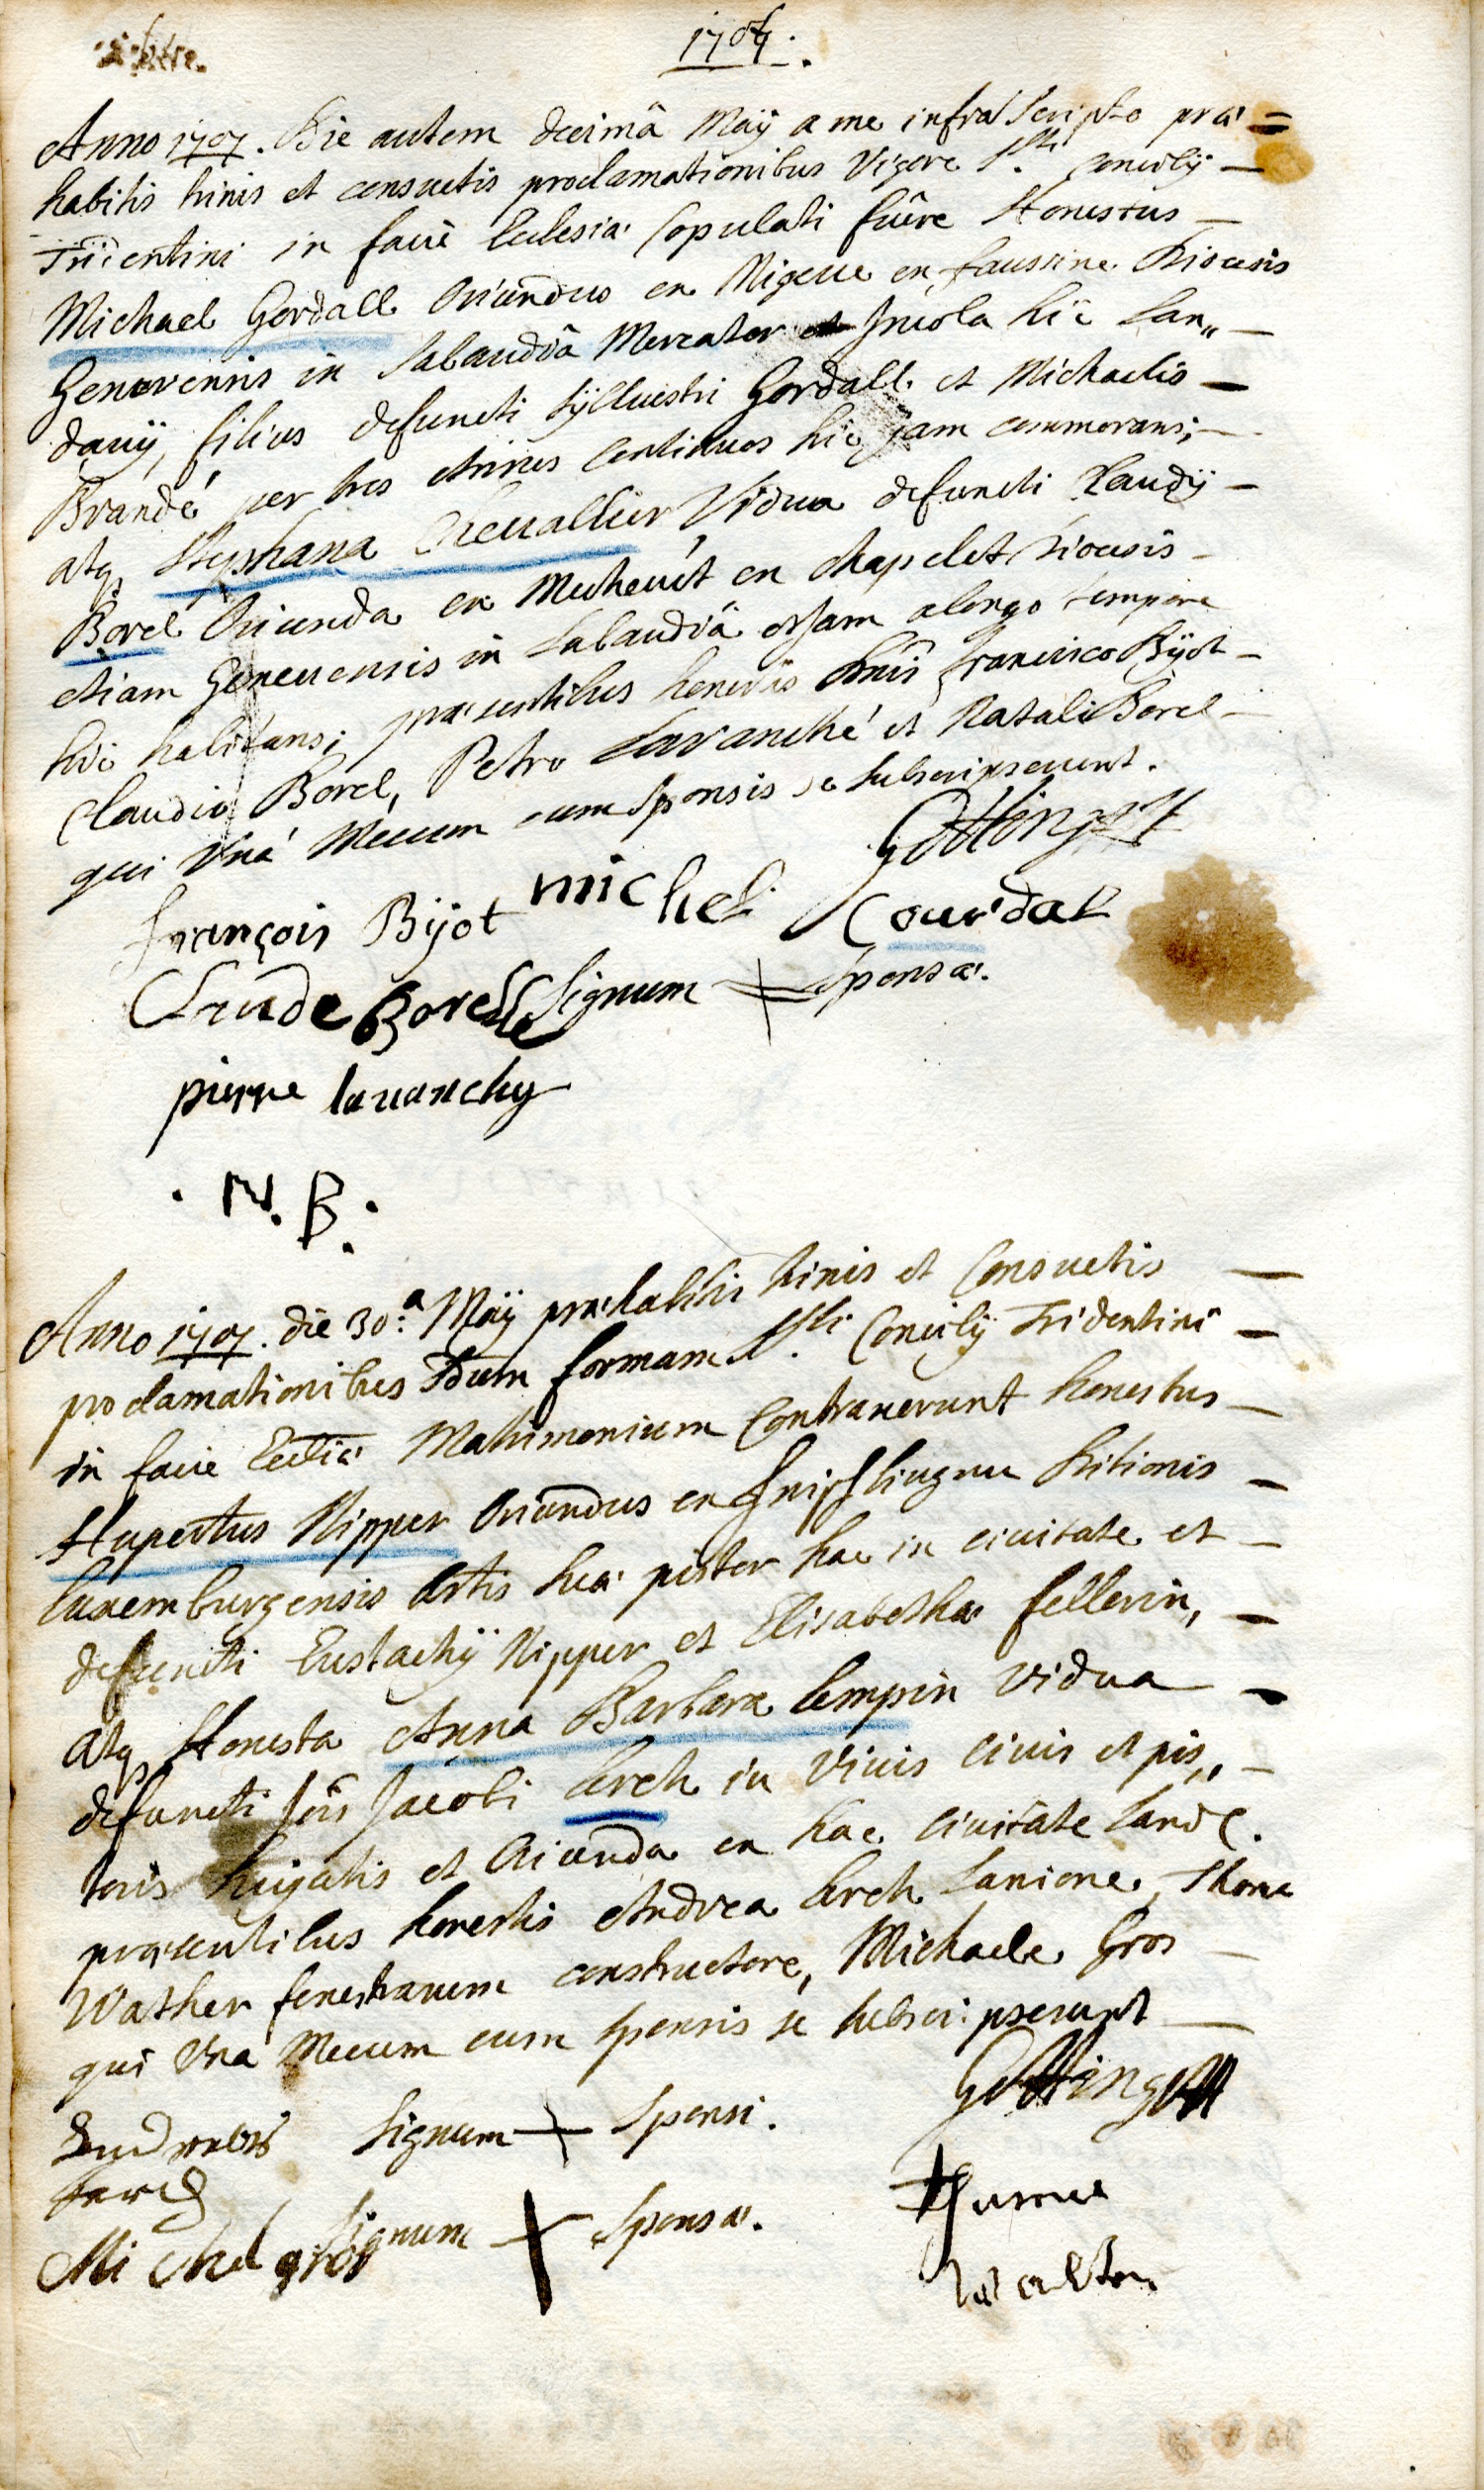 1707.
Anno 1707. Die autem decimâ Maÿ a me infra scripto præ=
habitis trinis et consuetis proclamationibus Vigore S.sti concilÿ
Tridentini in facie Ecclesiæ Copulati fuêre Honestus
Michael Gordall Oriundus ex Migeve en faussine Diœcesis
Genevensis in Sabaudiâ Mercator et Incola hic Lan„
davÿ, filius defuncti Sÿlvestri Gordall et Michaelis
Brandé per tres Annos Continuos hic jam commorans;
atq Stephana Chevallier, Vidua defuncti Claudÿ
Borel Oriunda ex Mechevét en Chapelet Diœcesis
etiam Genevensis in Sabaudiâ et jam a longo tempore
hic habitans; præsentibus honestis Dnis Francisco Bÿot
Claudio Borel, Petro Lavanché et Natali Borel
qui Unà Mecum cum Sponsis se subscripserunt.
Gottingr
François Bijot michel Gourdal
Claude Borelle Signum + Sponsæ.
pierre lavanchy
. N. B.
Anno 1707. die 30.a Maÿ præhabitis trinis et Consuetis
proclamationibus sdum formam S.sti Concilÿ Tridentini
in facie Ecctiæ Matrimonium Contraxerunt honestus
Hupertus Nipper Oriundus ex Ditionis
luxemburgensis Artis suæ pistor hac in civitate et
defuncti Eustachÿ Nipper et Elisabetha fellerin,
atq Honesta Anna Barbara Lempin vidua
defuncti Jois Jacobi Lerch in vivis civis et pis„
toris hujatis et Oriunda ex hac civitate Land.
præsentibus honestis Andrea Lerch Lanione, Thoma
Wather fenestrarum constructore, Michaele Gros
qui Unà Mecum cum sponsis se subscripserunt
Gottinger
Andreas Signum + Sponsi.
Lerch
Michel gros Signum + Sponsæ.
Thomas
Walter